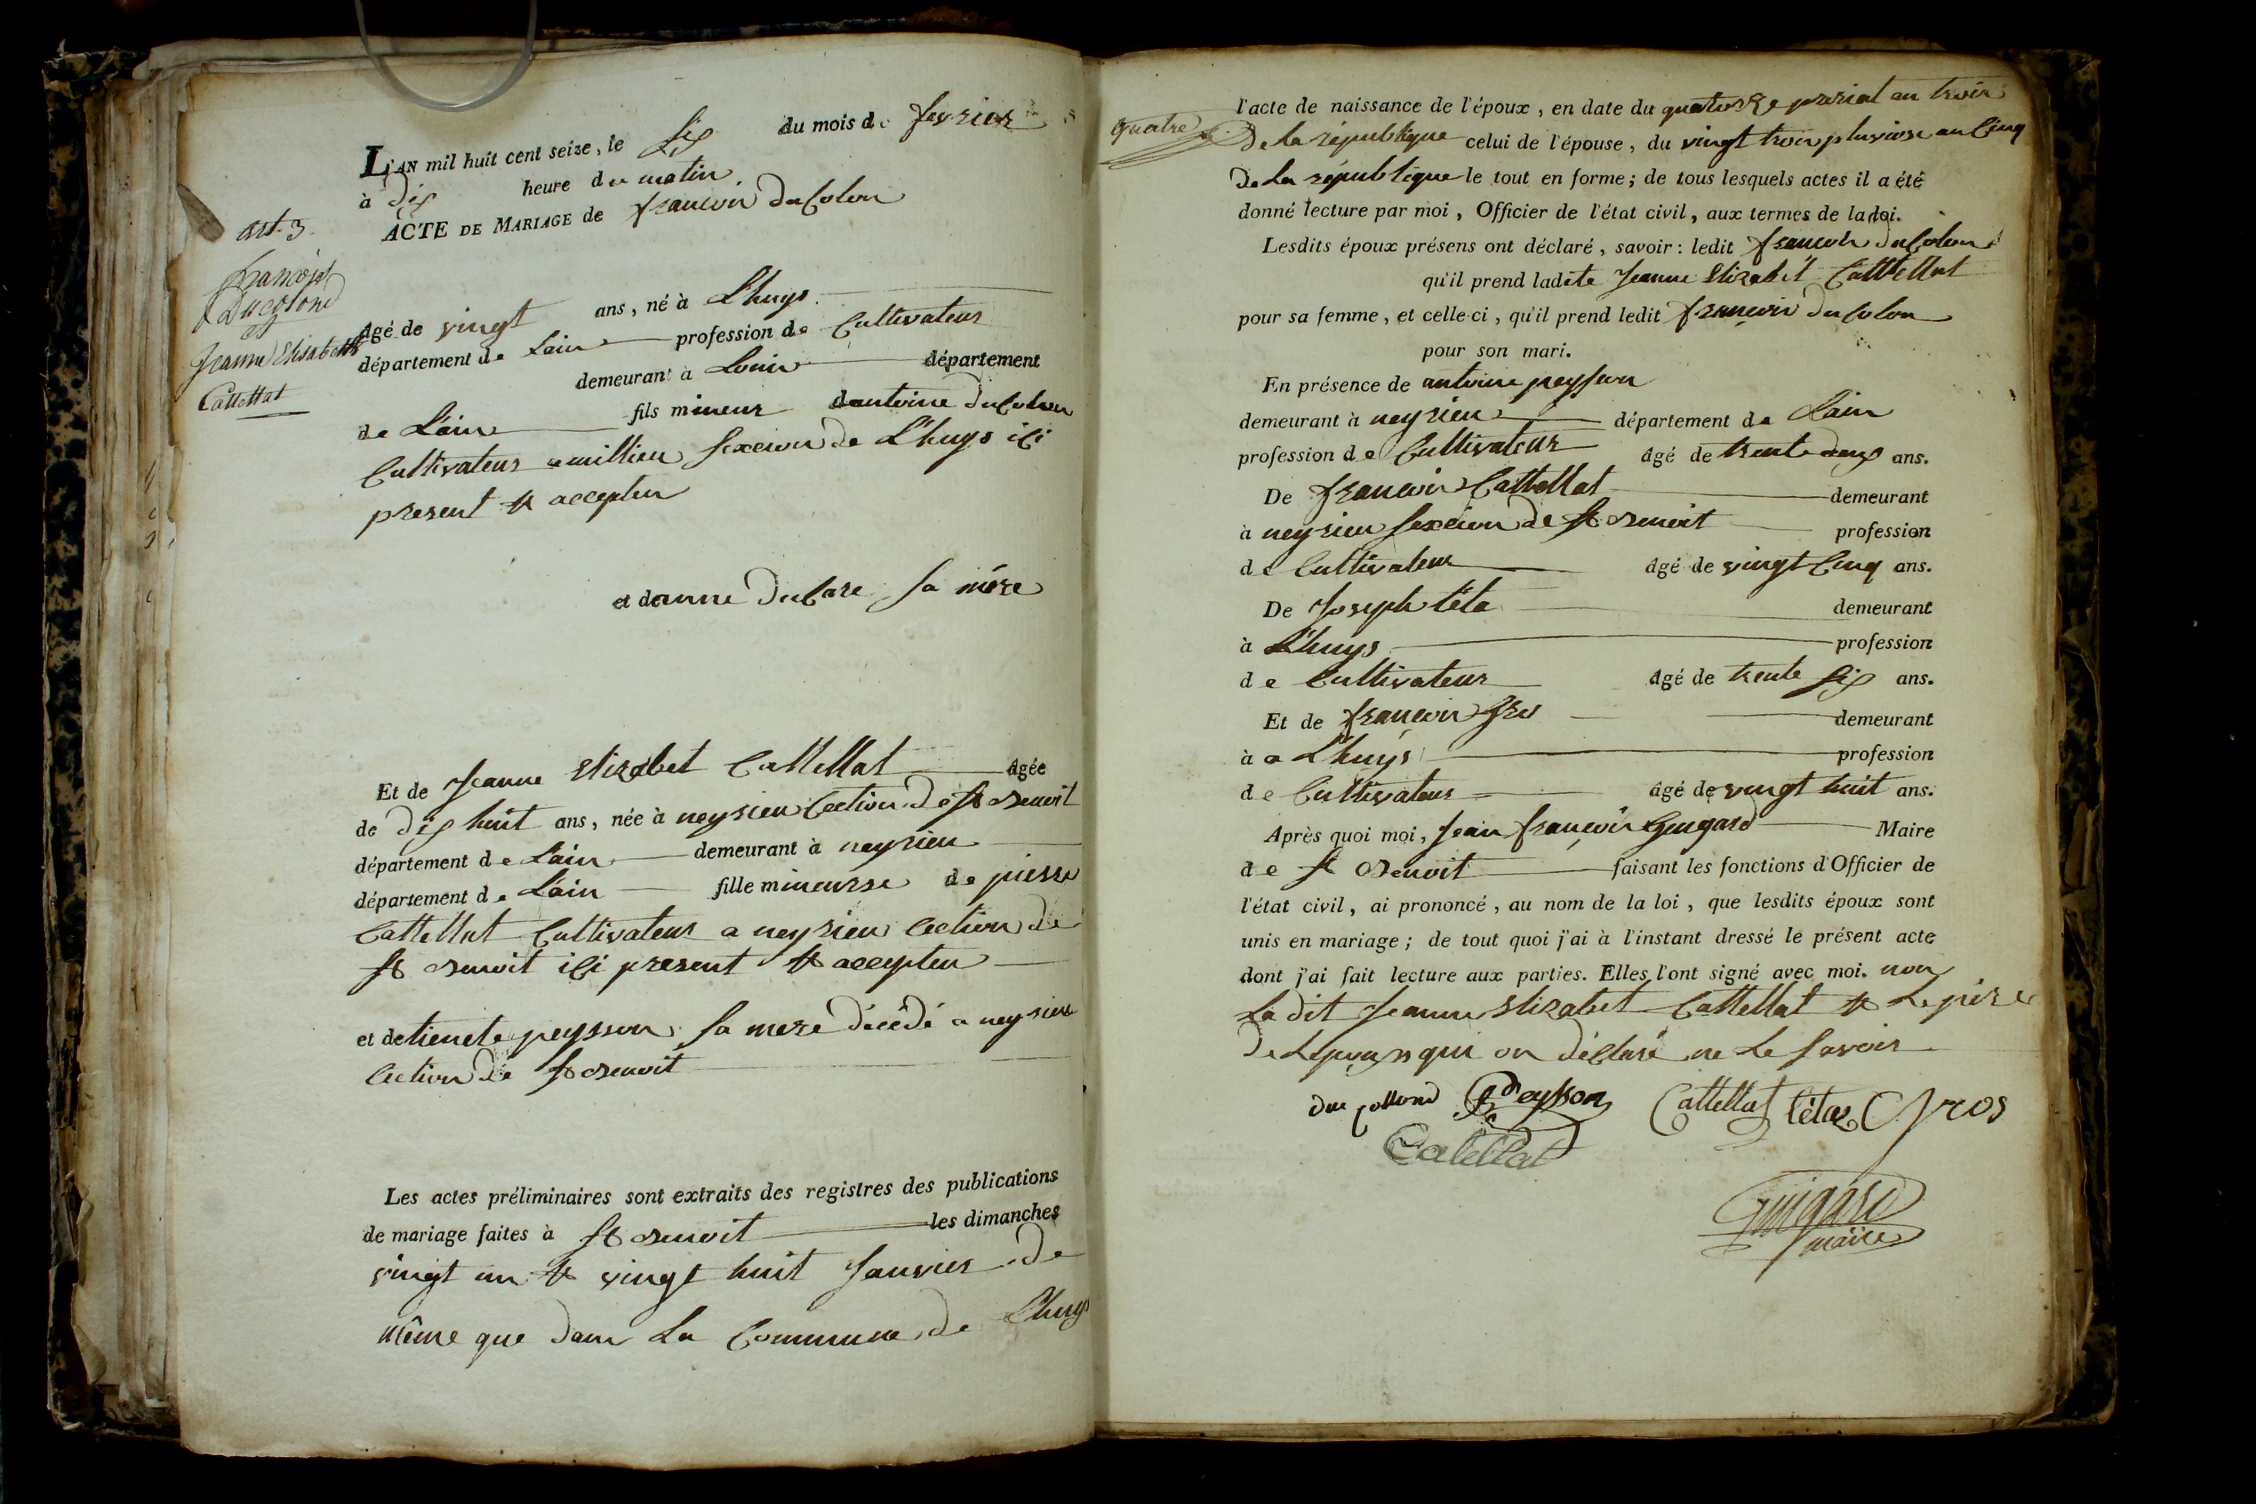 L'AN mil huit cent seize, le Six du mois de fevrier
à Dix heure du matin
ACTE DE MARIAGE de francois ducolon
art. 3.
françois
Ducolond
et
Jeanne Elisabeth
Cattellat
Agé de vingt ans, né à L'huys
département de Lain profession de Cultivateur
demeurant à Lain département
de Lain fils mineur dantoine ducolon
Cultivateur a millieu sexcion de L'huys ici
present et accepten
et danne ducare sa mére
Et de Jeanne Elizabet Cattellat Agée
de dix huit ans, née à neyrieu Cection de st Benoit
département de Lain demeurant à neyrieu
département de Lain fille mineurse de pierre
Cattellat Cultivateur a neyrieu Cection de
st Benoit ici present et accepten
et de tienete peysson sa mere décédé a neyrieu
Cection de st Benoit
Les actes préliminaires sont extraits des registres des publications
de mariage faites à st Benoit les dimanches
vingt un et vingt huit Janvier de
même que dans La Commune de L'huys
l'acte de naissance de l'époux, en date du quatorze prerial an trois
quatre
De la république celui de l'épouse, du vingt trois pluviose an Cinq
De la république le tout en forme; de tous lesquels actes il a été
donné lecture par moi, Officier de l'état civil, aux termes de la loi.
Lesdits époux présens ont déclaré, savoir: ledit francois ducolon
qu'il prend ladite Jeanne Elizabet Cattellat
pour sa femme, et celle-ci, qu'il prend ledit françois ducolon
pour son mari.
En présence de antoine peysson
demeurant à neyrieu département de Lain
profession de Cultivateur agé de trente deux ans.
De francois Cattellat demeurant
à neyrieu sexcion de st Benoit profession
de Cultivateur agé de vingt Cinq ans.
De Joseph téta demeurant
à L'huys profession
de Cultivateur agé de trente six ans.
Et de francois gro demeurant
à a L'huys profession
de Cultivateur agé de vingt huit ans.
Après quoi moi, Jean françois Guigard Maire
de st Benoit faisant les fonctions d'Officier de
l'état civil, ai prononcé, au nom de la loi, que lesdits époux sont
unis en mariage; de tout quoi j'ai à l'instant dressé le présent acte
dont j'ai fait lecture aux parties. Elles l'ont signé avec moi. non
La dit Jeanne Elizabet Cattellat et Le pere
De Lepoux qui on déclaré ne Le savoir
du collond Peysson Cattellat tétaz Gros
Catellat
Guigard
maire